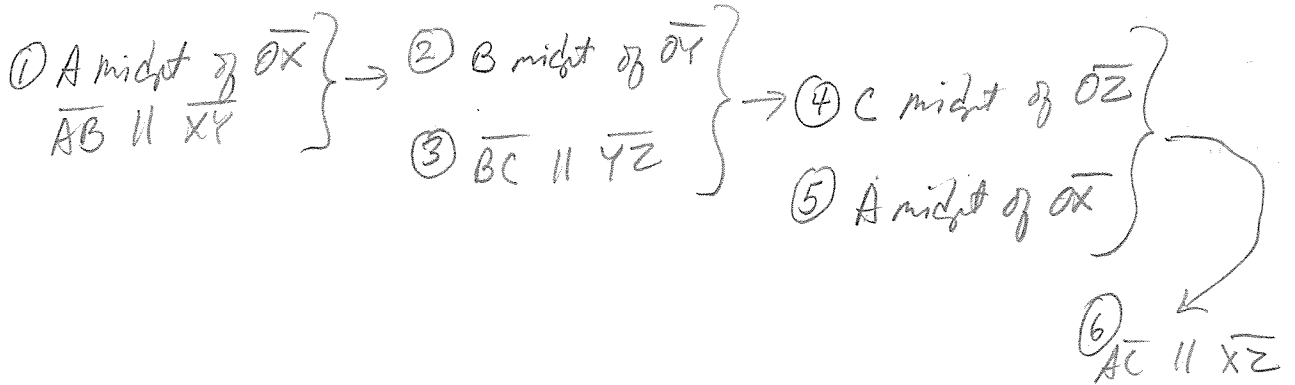 ① A midpt of O̅X̅ } →
A̅B̅ || X̅Y̅
② B midpt of O̅Y̅ } →
③ B̅C̅ || Y̅Z̅
④ C midpt of O̅Z̅ }
⑤ A midpt of O̅X̅
⑥ A̅C̅ || X̅Z̅